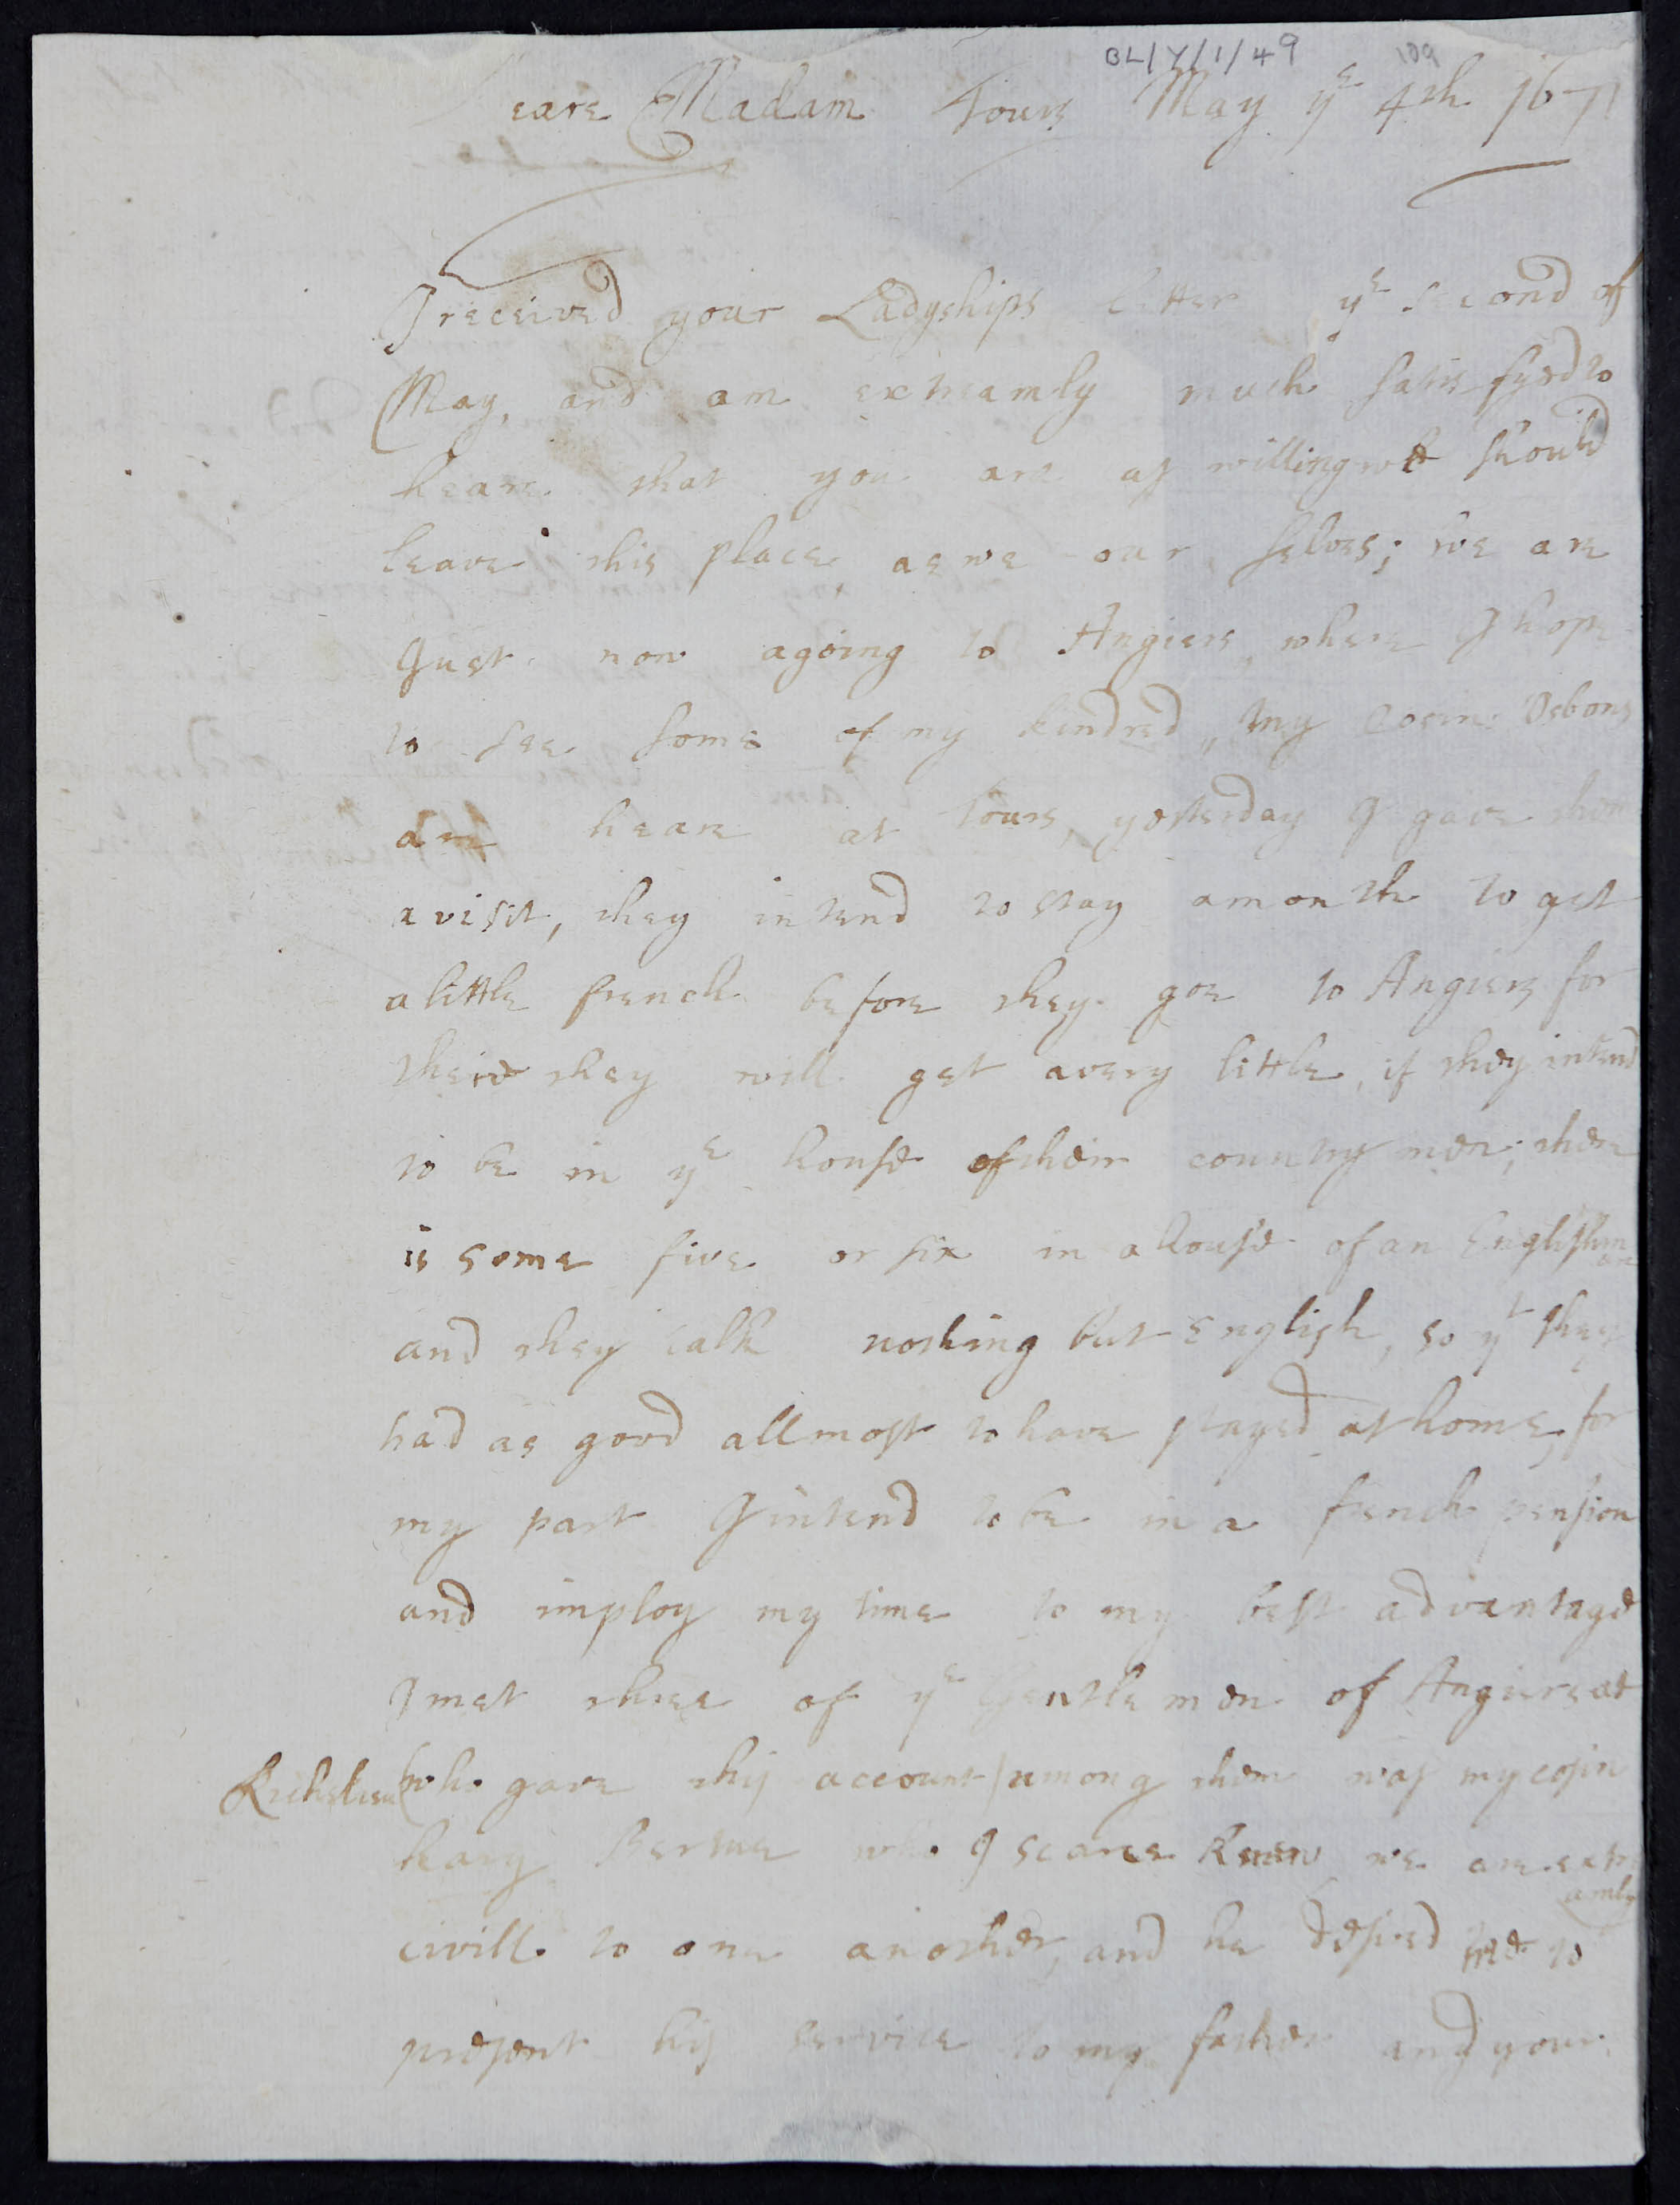 BL/Y/1/49 109
Deare Madam Tours May ye 4th 1671
I received your Ladyships letter ye second of
May, and am extreamly much satisfyed to
heare that you are as willing we should
leave this place, as we our selves; we are
Just now agoing to Angiers, where I hope
to see some of my kindred, my Cosin Osbons
are heare at tours, yesterday I gave them
a visit, they intend to stay a month to get
a little french before they goe to Angiers for
there they will get a very little, if they intend
to be in ye house of their country men; there
is some five or six in a house of an Englishman
and they talk nothing but English, so yt they
had as good allmost to have stayed at home, for
my part I intend to be in a french pension
and imploy my time to my best advantage
I met three of ye Gentlemen of Angiers at
Richelieu (who gave this account) among them was my cosin
hary Bertue who I scarce knew we are extreamly
civill to one another, and he desired me to
present his service to my father and your